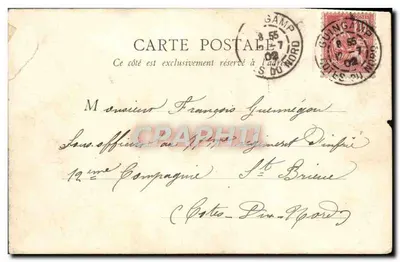 CARTE POSTALE
Ce côté est exclusivement réservé à l'adresse
GUINGAMP
8 55
-7
02
CÔTES DU NORD
GUINGAMP
8 55
-7
02
CÔTES DU NORD
Monsieur François Guennégou
Sous-officier au Régiment d'Infrie
12ème Compagnie St Brieuc
(Côtes-Du-Nord)
CPAPHIL